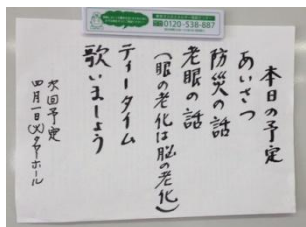 0120-538-887
本日の予定
あいさつ
防災の話
老眼の話
(眼の老化は脳の老化)
ティータイム
歌いましょう
次回予定
四月一日(火)タヤホール